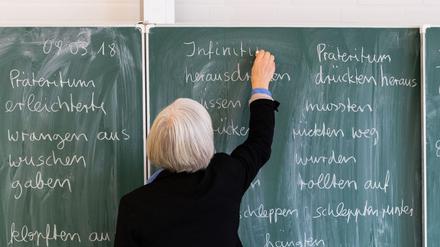 09.03.18
Präteritum
erleichterte
wrangen aus
wuschen
gaben
klopften au
Infinitiv
herausdrücken
üssen
ücken
schleppen
hangten
Präteritum
drückten heraus
mussten
rückten weg
wurden
rollten auf
schleppten runter